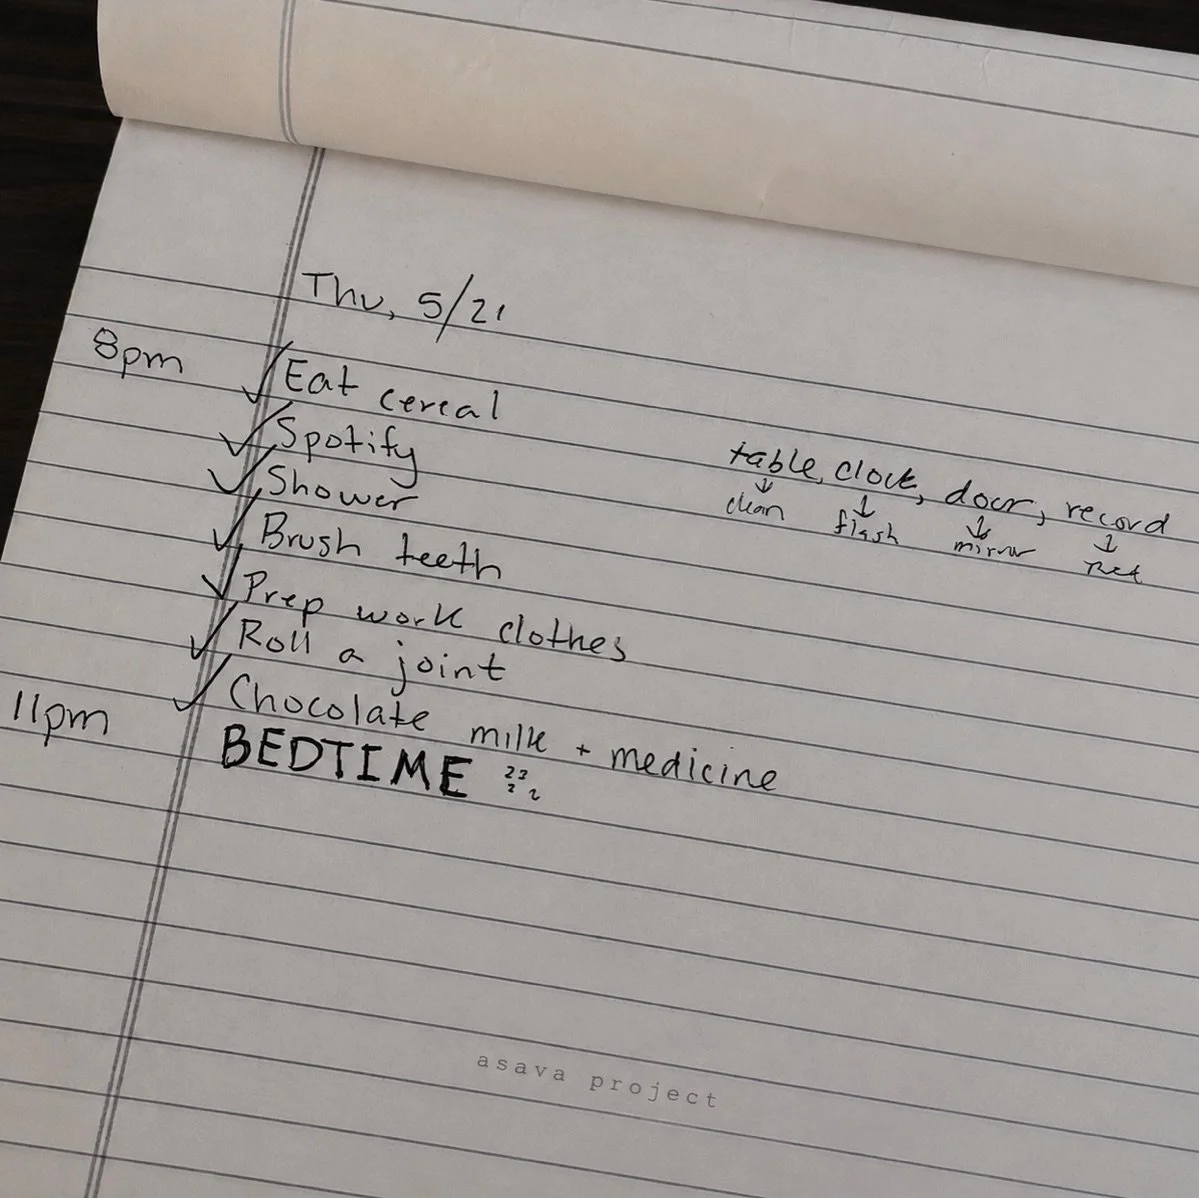 Thu, 5/21
8pm
✓ Eat cereal
✓ Spotify
✓ Shower
✓ Brush teeth
✓ Prep work clothes
✓ Roll a joint
✓ Chocolate milk + medicine
11pm
BEDTIME
table, clock, door, record
↓ ↓ ↓ ↓
clean flash mirror
asava project